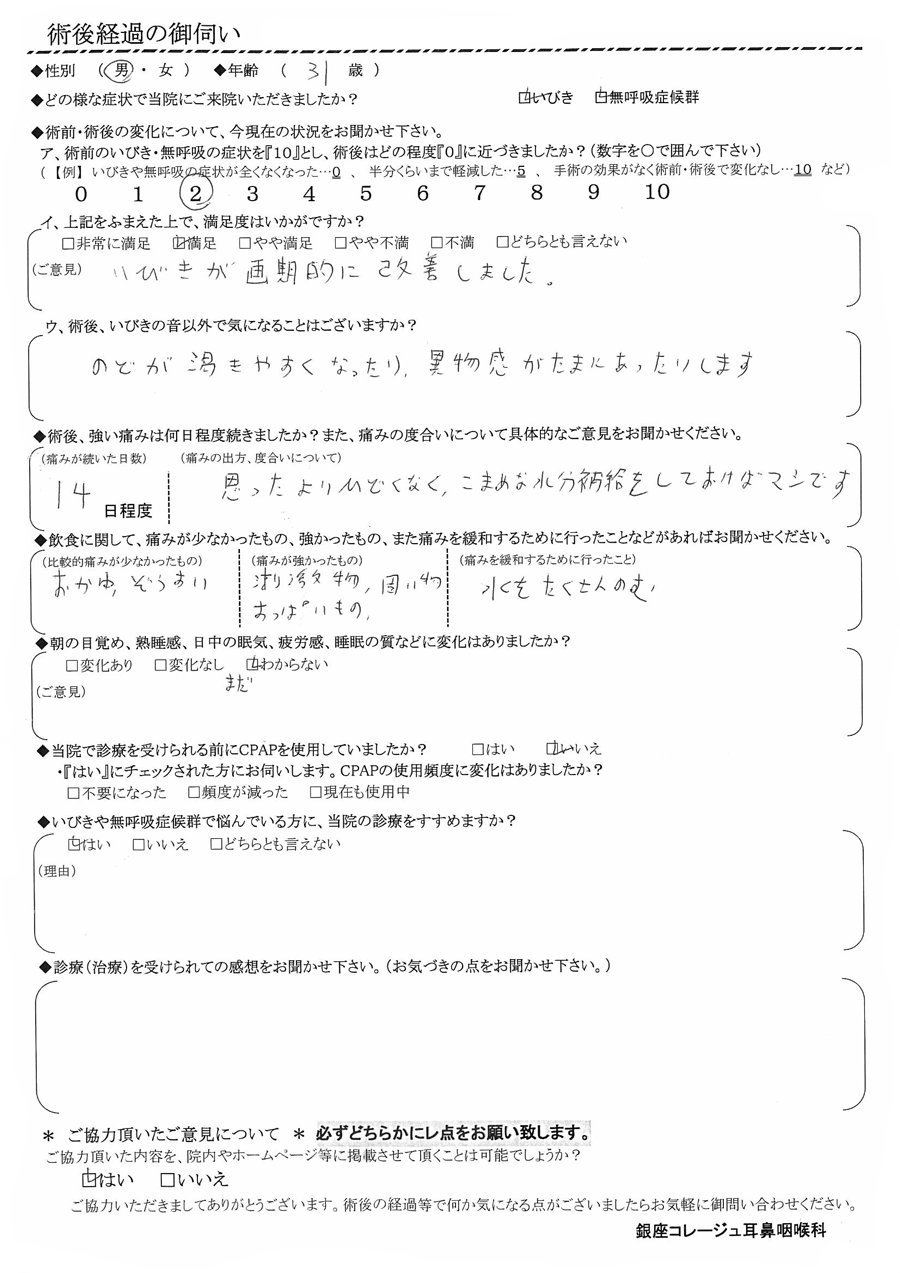 術後経過の御伺い
◆性別 ( 男 ・ 女 ) ◆年齢 ( 31 歳 )
◆どの様な症状で当院にご来院いただきましたか? ☑いびき ☑無呼吸症候群
◆術前・術後の変化について、今現在の状況をお聞かせ下さい。
ア、術前のいびき・無呼吸の症状を『10』とし、術後はどの程度『0』に近づきましたか?(数字を〇で囲んで下さい)
(【例】いびきや無呼吸の症状が全くなくなった…0 、 半分くらいまで軽減した…5 、 手術の効果がなく術前・術後で変化なし…10 など)
0 1 2 3 4 5 6 7 8 9 10
イ、上記をふまえた上で、満足度はいかがですか?
□非常に満足 ☑満足 □やや満足 □やや不満 □不満 □どちらとも言えない
(ご意見) いびきが画期的に改善しました。
ウ、術後、いびきの音以外で気になることはございますか?
のどが渇きやすくなったり、異物感がたまにあったりします
◆術後、強い痛みは何日程度続きましたか?また、痛みの度合いについて具体的なご意見をお聞かせください。
(痛みが続いた日数) (痛みの出方、度合いについて)
14 日程度 思ったよりひどくなく、こまめな水分補給をしておけばマシです
◆飲食に関して、痛みが少なかったもの、強かったもの、また痛みを緩和するために行ったことなどがあればお聞かせください。
(比較的痛みが少なかったもの) (痛みが強かったもの) (痛みを緩和するために行ったこと)
おかゆ、ぞうすい 刺激物、固い物 水をたくさんのむ
すっぱいもの、
◆朝の目覚め、熟睡感、日中の眠気、疲労感、睡眠の質などに変化はありましたか?
□変化あり □変化なし ☑わからない
(ご意見) まだ
◆当院で診療を受けられる前にCPAPを使用していましたか? □はい ☑いいえ
・『はい』にチェックされた方にお伺いします。CPAPの使用頻度に変化はありましたか?
□不要になった □頻度が減った □現在も使用中
◆いびきや無呼吸症候群で悩んでいる方に、当院の診療をすすめますか?
☑はい □いいえ □どちらとも言えない
(理由)
◆診療(治療)を受けられての感想をお聞かせ下さい。(お気づきの点をお聞かせ下さい。)
＊ ご協力頂いたご意見について ＊ 必ずどちらかにレ点をお願い致します。
ご協力頂いた内容を、院内やホームページ等に掲載させて頂くことは可能でしょうか?
☑はい □いいえ
ご協力いただきましてありがとうございます。術後の経過等で何か気になる点がございましたらお気軽に御問い合わせください。
銀座コレージュ耳鼻咽喉科